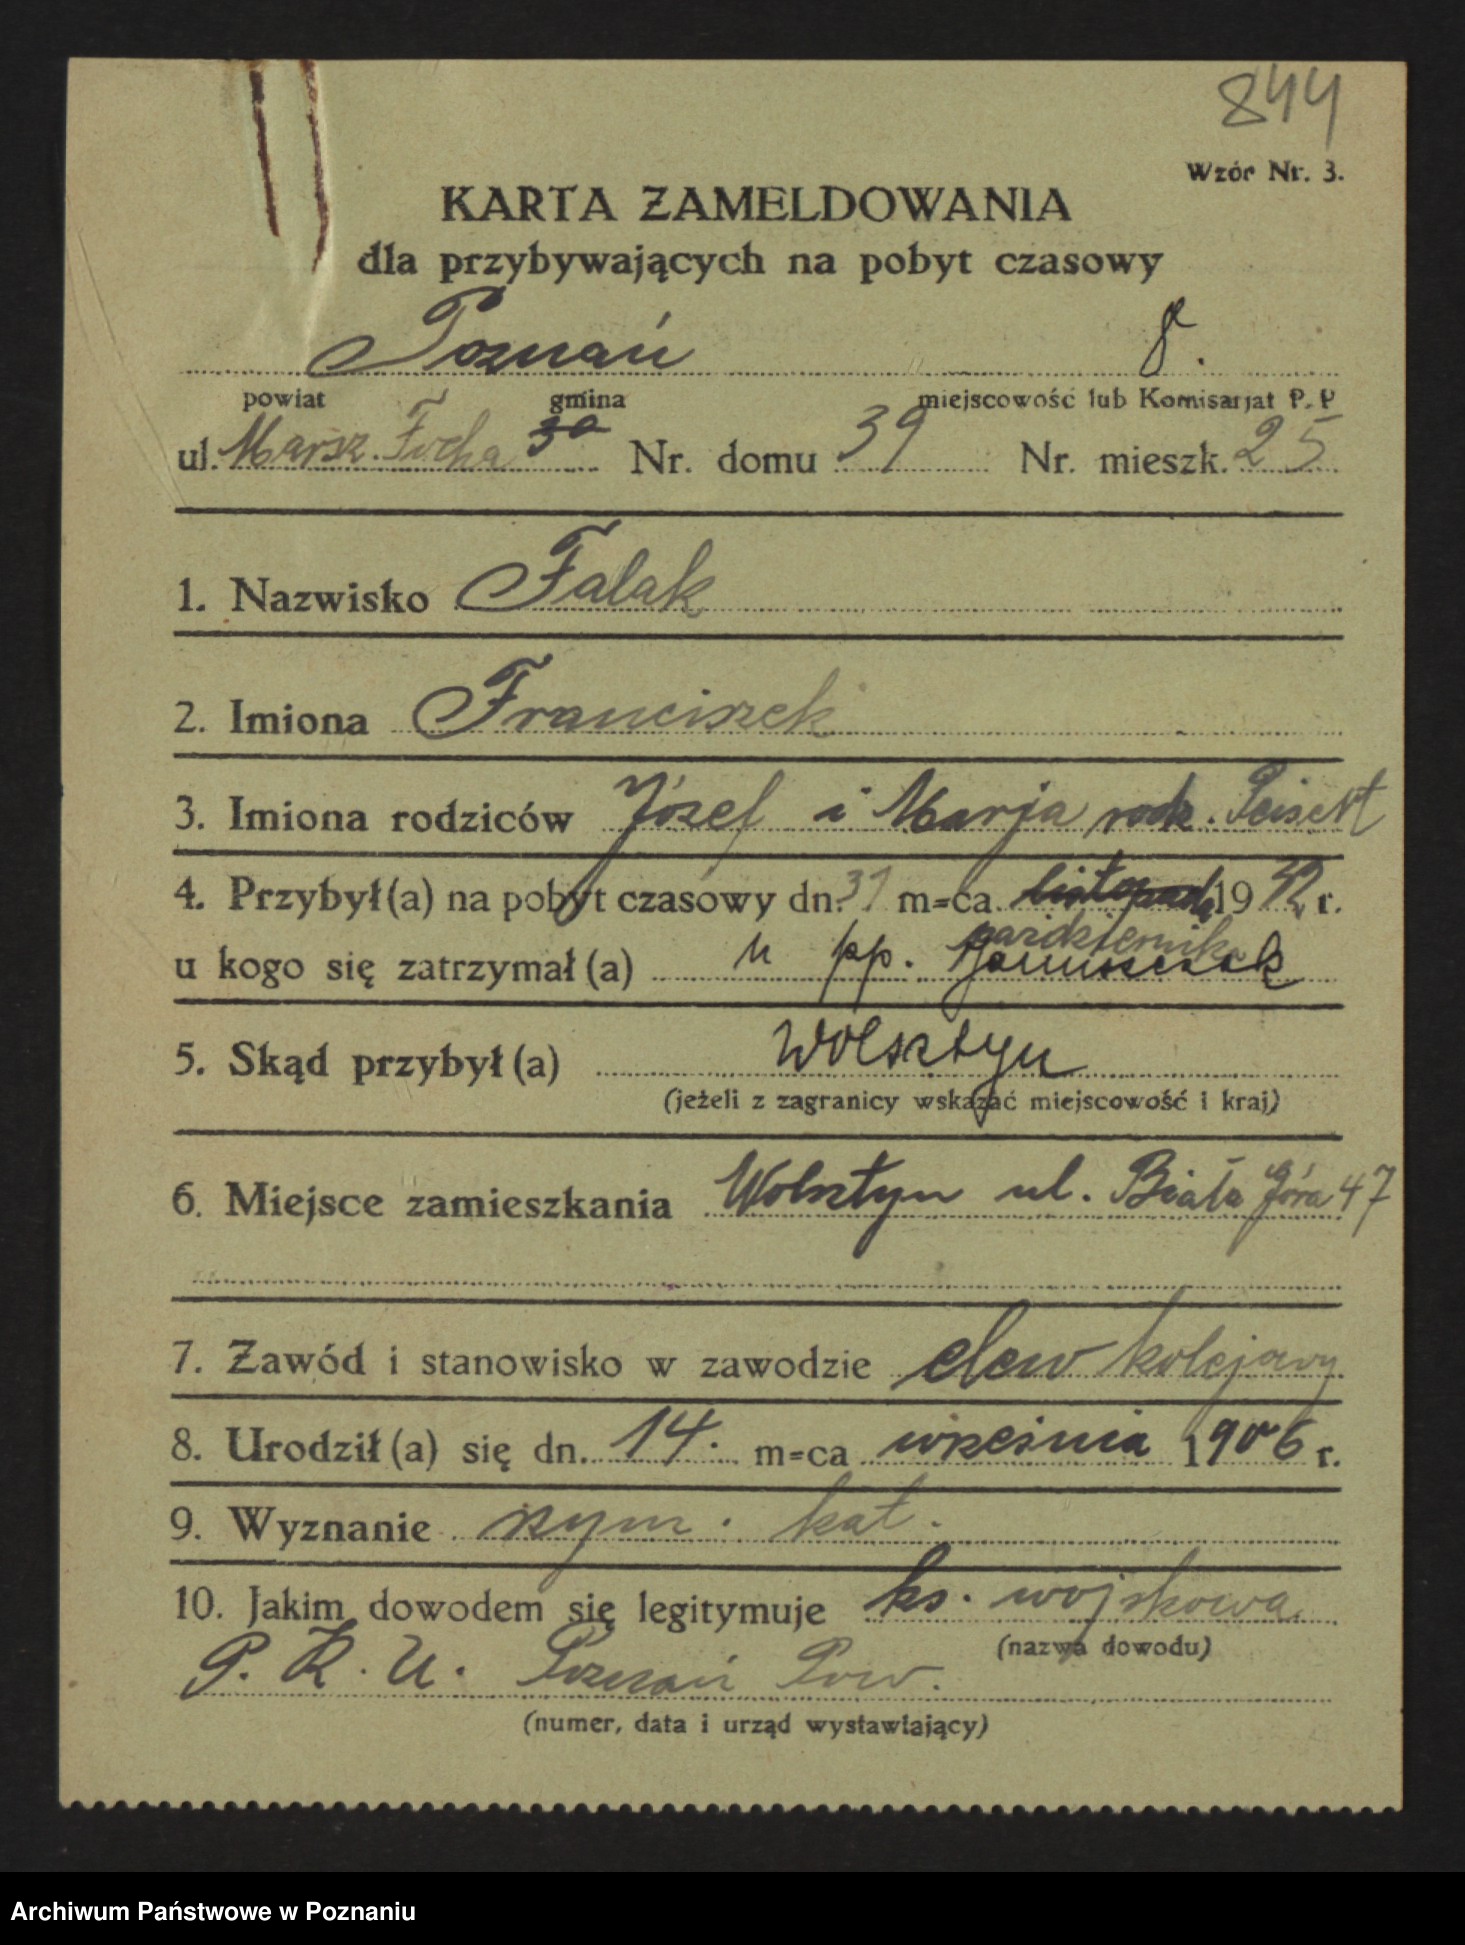 844
Wzór Nr. 3.
KARTA ZAMELDOWANIA
dla przybywających na pobyt czasowy
Poznań 8.
powiat gmina miejscowość lub Komisarjat P. P
ul. Marsz. Focha 39 Nr. domu 39 Nr. mieszk. 25
1. Nazwisko Falak
2. Imiona Franciszek
3. Imiona rodziców Józef i Marja rodz. Peisert
4. Przybył(a) na pobyt czasowy dn. 31 m=ca listopada 19 r.
października
u kogo się zatrzymał(a) u pp.
5. Skąd przybył(a) Wolsztyn
(jeżeli z zagranicy wskazać miejscowość i kraj)
6. Miejsce zamieszkania Wolsztyn ul. Biała Góra 47
7. Zawód i stanowisko w zawodzie elew kolejowy
8. Urodził(a) się dn. 14. m=ca września 1906 r.
9. Wyznanie rzym. kat.
10. Jakim dowodem się legitymuje ks. wojskowa
(nazwa dowodu)
P. K. U. Poznań Pow.
(numer, data i urząd wystawiający)
Archiwum Państwowe w Poznaniu